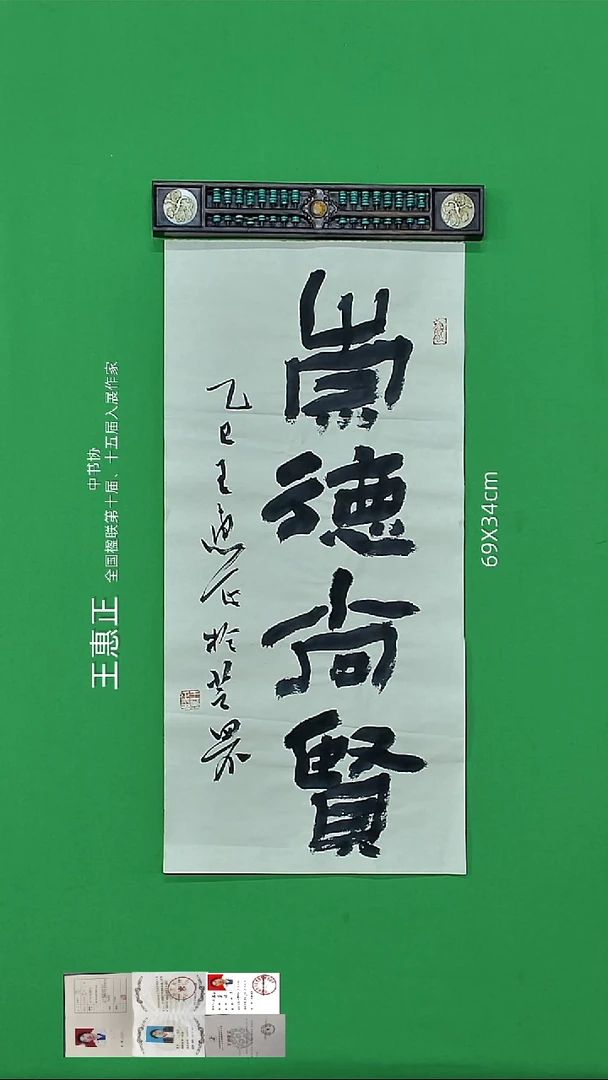 崇德尚賢
乙巳王惠正於楚
王惠正
中书协
全国楹联第十届、十五届入展作家
69X34cm